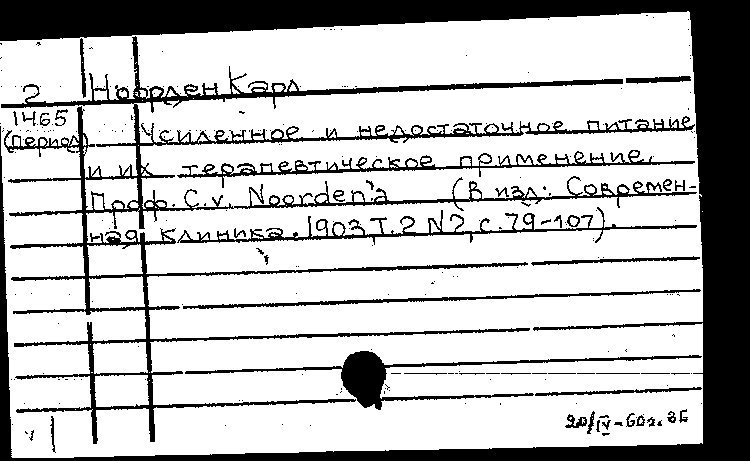 2 Ноорден, Карл
1465
(Период) Усиленное и недостаточное питание
и их терапевтическое применение.
Проф. C. v. Noorden'а (В изд.: Современ-
ная клиника. 1903, Т. 2 N2, с. 79-107).
20/IV-60г.